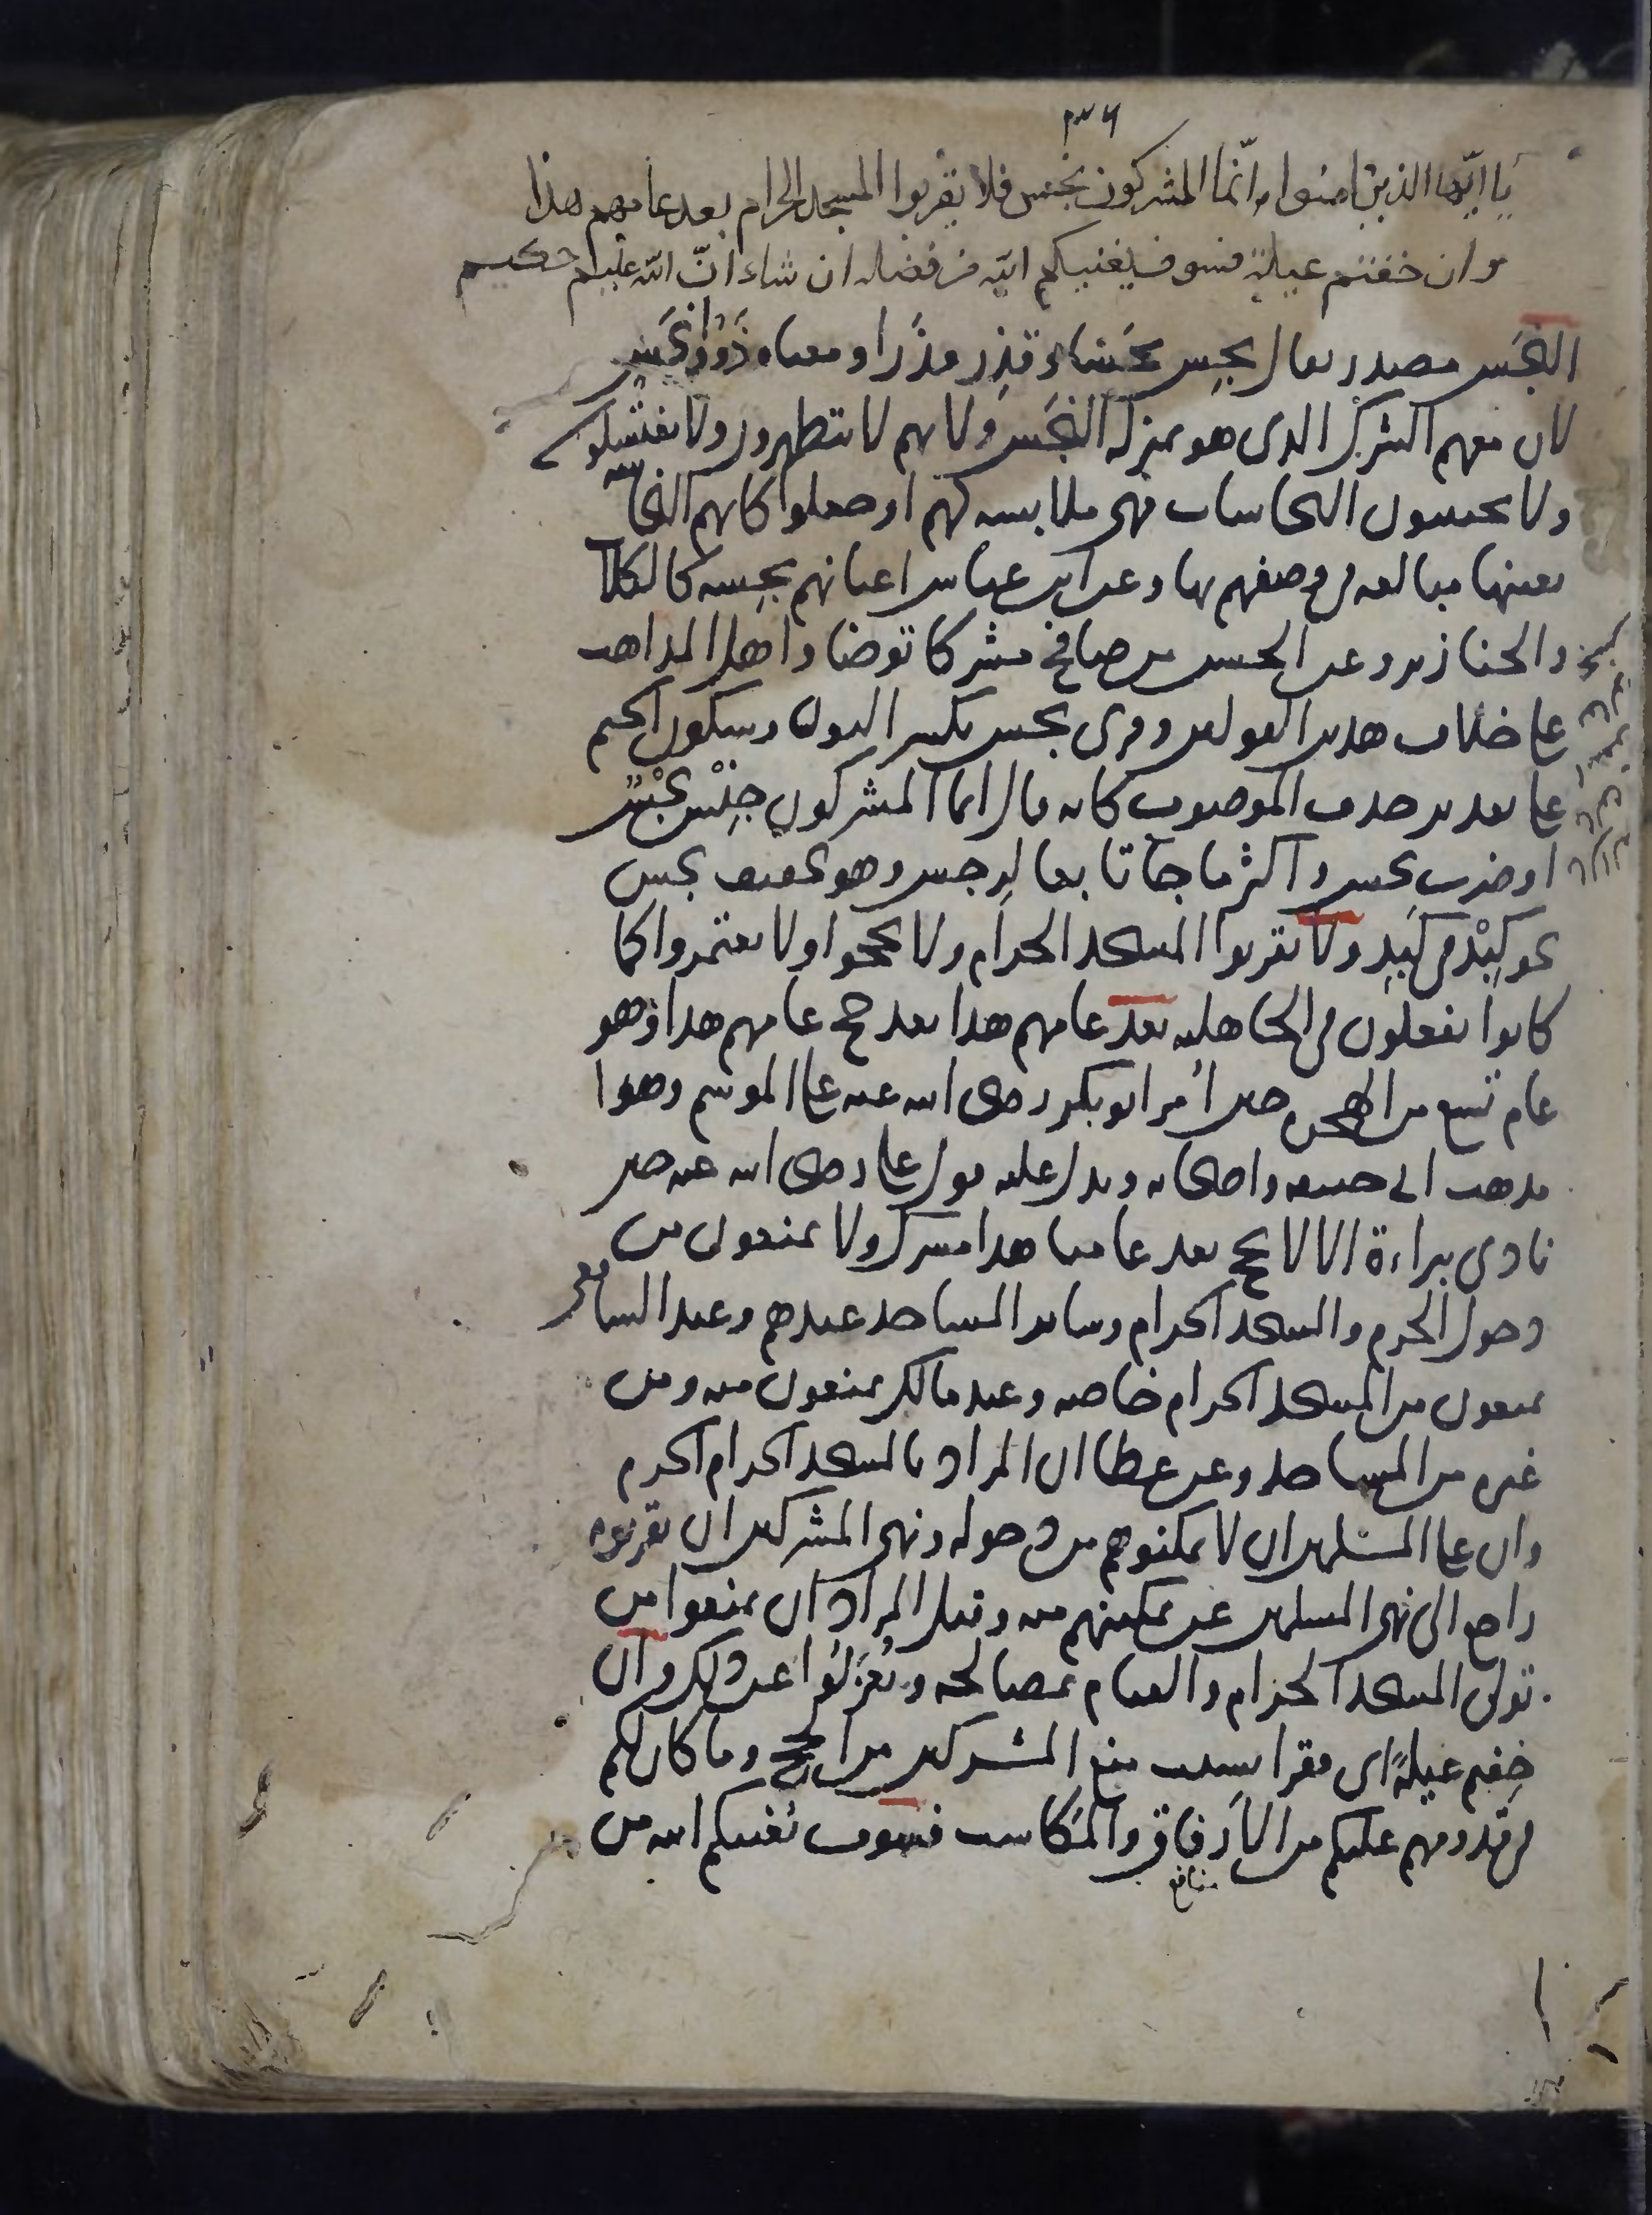 ٢٣٦
يا ايّها الذين امنوا انّما المشركون نجس فلا يقربوا المسجد الحرام بعد عامهم هذا
وان خفتم عيلة فسوف يغنيكم الله من فضله ان شاء انّ الله عليم حكيم
النجَس مصدر يقال نجِس نجَسا وقذِر قذَرا ومعناه ذَوُوا نجَس
لان معهم الشرك الذى هو بمنزلة النجَس ولانهم لا يتطهرون ولا يغتسلون
ولا يجتنبون النجاسات فهى ملابسة لهم او جعلوا كانهم النجاسة
بعينها مبالغة فى وصفهم بها وعن ابن عباس اعيانهم نجِسة كالكلا
والخنازير وعن الحسن من صافح مشركا توضا واهل المذاهب
على خلاف هذين القولين وقرى نجس بكسر النون وسكون الجيم
على تقدير حذف الموصوف كانه قال انما المشركون جِنْس نِجْس
او ضرب نجس واكثر ما جا تابعا لرجس وهو تخفيف نجس
نحو كِبْد فى كَبِد ولا يقربوا المسجد الحرام ولا يحجوا ولا يعتمروا كما
كانوا يفعلون فى الجاهلية بعد عامهم هذا بعد حج عامهم هذا وهو
عام تسع من الهجرة حين اُمر ابو بكر رضى الله عنه على الموسم وهوا
مذهب ابى حنيفة واصحابه ويدل عليه قول على رضى الله عنه حين
نادى ببراءة الا لا يحج بعد عامنا هذا مشرك ولا يمنعون من
دخول الحرم والمسجد الحرام وساير المساجد عندهم وعند الشافعى
يمنعون من المسجد الحرام خاصة وعند مالك يمنعون منه ومن
غيره من المساجد وعن عطا ان المراد بالمسجد الحرام الحرم
وان على المسلمين ان لا يمكنوهم من دخوله ونهى المشركين ان يقربوه
راجع الى نهى المسلمين عن تمكينهم منه وقيل المراد ان يمنعوا من
تولى المسجد الحرام والقيام بمصالحه ويُعزَلوا عن ذلك وان
خِفتم عيلةً اى فقرا بسبب منع المشركين من الحج وما كان لكم
فى قدومهم عليكم من الارفاق والمكاسب فسوف يُغنيكم الله من
منافع